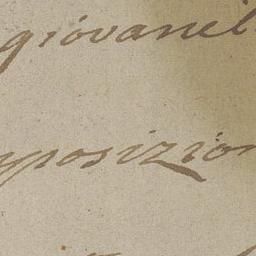 giovanil
mposizion